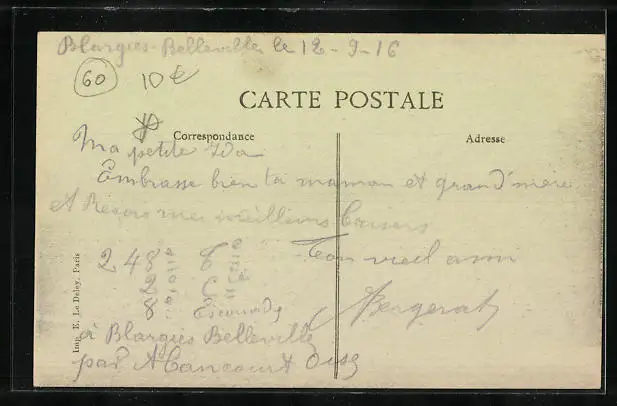 Blargies-Belleville le 12-9-16
60
10€
CARTE POSTALE
Correspondance
Adresse
Ma petite Ida
Embrasse bien ta maman et grand'mère
et Reçois mes meilleurs baisers
Ton vieil ami
Bergerat
248e T
2e C
8e Escouade
à Blargies Belleville
par Abancourt Oise
Imp. E. Le Deley, Paris